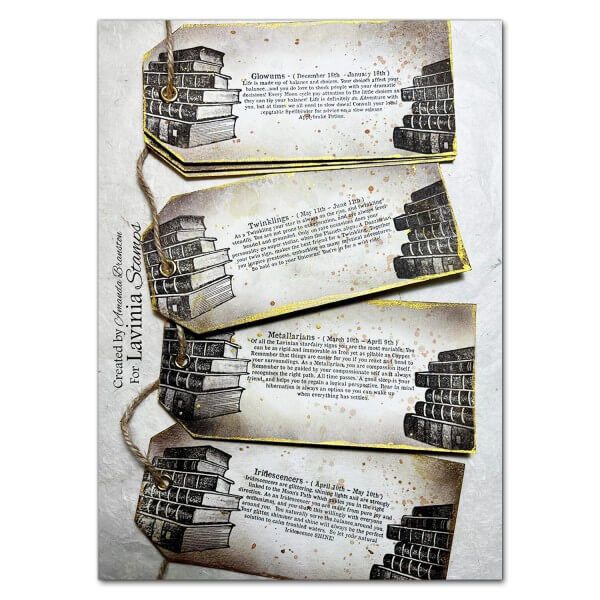 Glowums - ( December 19th - January 18th )
Life is made up of balance and choices. Your choices affect your
balance...and you do love to shock people with your dramatic
decisions! Every Moon cycle pay attention to the little choices as
they can tip your balance! Life is definitely an Adventure with
you, but at times we all need to slow down! Consult your local
reputable Spellbinder for advice on a slow release
Applejake Potion.
Twinklings - ( May 11th - June 11th )
As a Twinkling your star is always on the rise, and twinkling
steadily. You are not prone to exaggeration, and are always level-
headed and grounded. Only on rare occasions does your
personality go super stellar, when the Planets align. A Dazzlarian,
your twin sign, makes the best friend for a Twinkling. Together
you inspire greatness, embarking on many mystical adventures,
so hold on to your Unicorns! You're for a wild ride!
Metallarians - ( March 10th - April 9th )
Of all the Lavinian starfairy signs you are the most variable. You
can be as rigid and immovable as Iron yet as pliable as Copper.
Remember that things are easier for you if you react and bend to
your surroundings. As a Metallarian you are compassion itself.
Remember to be guided by your compassionate self as it always
recognises the right path. All time passes. A good sleep is your
friend, and helps you to regain a logical perspective. Bear in mind
hibernation is always an option so you can wake up
when everything has settled.
Iridescencers - ( April 10th - May 10th )
Iridescencers are glittering, shining lights and are strongly
linked to the Moon's Path which guides you in the right
direction. As an Iridescencer you are made from pure joy and
enthusiasm, and you share this willingly with everyone
around you. You naturally serve the balance around you.
Your glitter, shimmer and shine will always be the perfect
solution to calm troubled waters. So let your natural
Iridescence SHINE!
Created by Amanda Branston
For Lavinia Stamps